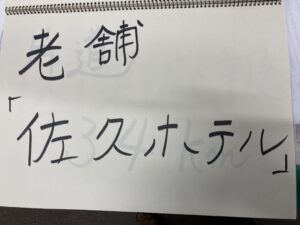 老舗
「佐久ホテル」